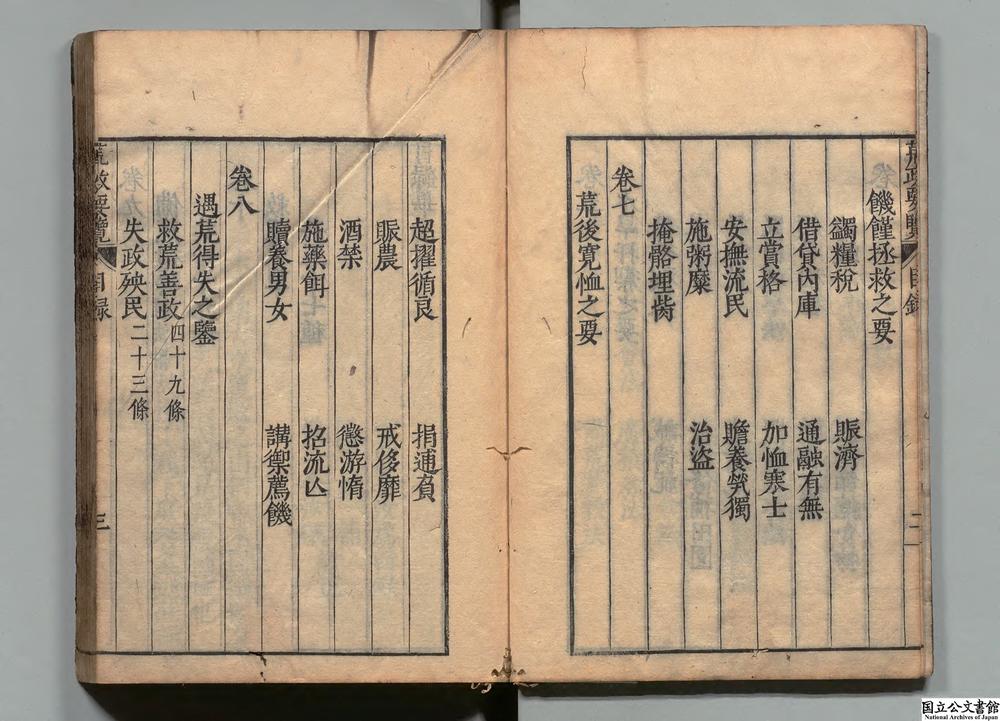 饑饉拯救之要
蠲糧稅 賑濟
借貸內庫 通融有無
立賞格 加恤寒士
安撫流民 贍養煢獨
施粥糜 治盜
掩骼埋胔
卷七
荒後寬恤之要
超擢循良 捐逋負
賑農 戒侈靡
酒禁 懲游惰
施藥餌 招流亾
贖養男女 講禦薦饑
卷八
遇荒得失之鑒
救荒善政四十九條
失政殃民二十三條
荒政要覽 目錄 三
国立公文書館
National Archives of Japan